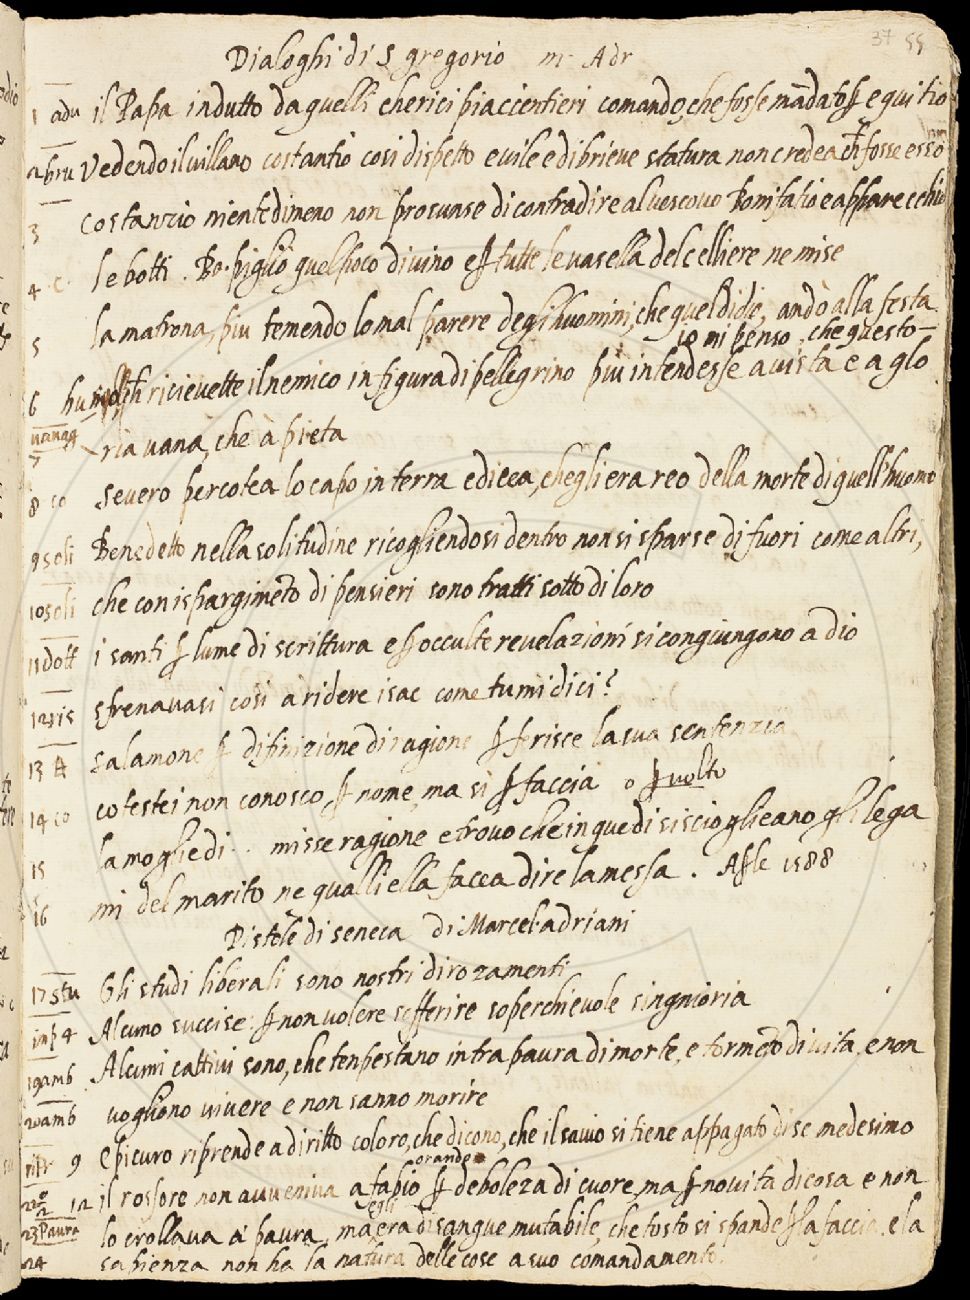 37 55
Dialoghi di S gregorio m. Adr
1 adu il Papa indutto da quelli cherici piaccentieri comandò, che fosse mādato ꝑ equitio
2 bru Vedendo il villano costantio cosi dispetto e vile e di brieve statura non credea ch̄ fosse esso
3 costanzio nientedimeno non prosunse di contradire al vescovo Bonifatio e apparecchiò
4 c le botti. Bo. piglio quel poco di vino e ꝑ tutte le vasella del celliere ne mise
5 la matrona, piu temendo lo mal parere degli huomini, che quel di dio, andò alla festa
io mi penso, che questo
6 ricievette il nemico in figura di pellegrino piu intendesse a vista e a glo
7 ria vana, che à pieta
8 co severo percotea lo capo in terra e dicea, chegli era reo della morte di quell'huomo
9 soli Benedetto nella solitudine ricogliendosi dentro non si sparse di fuori come altri,
10 soli che con ispargimēto di pensieri sono tratti sotto di loro
11 dott i santi ꝑ lume di scrittura e ꝑ occulte revelazioni si congiungono a dio
12 ris sfrenavasi cosi a ridere isac come tu mi dici?
13 salamone ꝑ difinizione di ragione ꝑferisce la sua sentenzia
14 co cotestei non conosco, ꝑ nome, ma si ꝑ faccia o ꝑ volto
15 la moglie di .. misse ragione e trovo che in que di si scioglieano gli lega
16 mi del marito ne qualli ella facea dire la messa. 1588
Pistole di seneca di Marcel. adriani
17 stu Gli studi liberali sono nostri dirozamenti
imp 4 Alcuno succise ꝑ non volere sofferire soperchievole singnioria
19 amb Alcuni cattivi sono, che tenpestano intra paura di morte, e tormēto di vita, e non
20 amb vogliono vivere e non sanno morire
ripr 9 Epicuro riprende a diritto coloro, che dicono, che il savio si tiene appagato di se medesimo
orande
22 12 il rossore non avveniva a fabio ꝑ deboleza di cuore, ma ꝑ novità di cosa e non
egli
23 Paura lo crollava a paura, ma era di sangue mutabile, che tosto si spande ꝑ la faccia, e la
24 sapienza non ha la natura delle cose a suo comandamento.